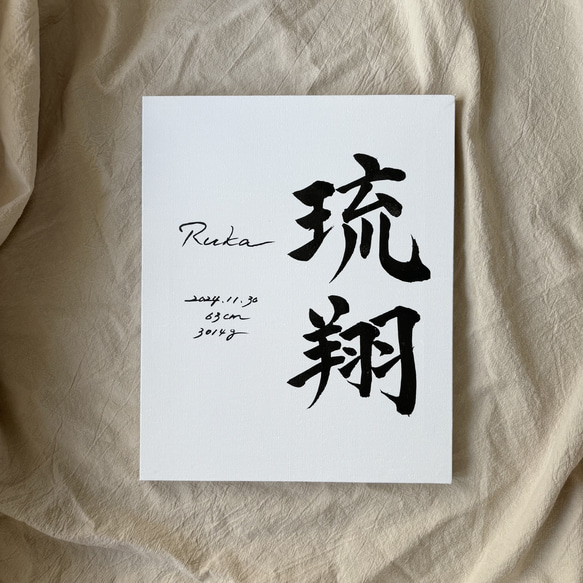 琉翔
Ruka
2024.11.30
63cm
3014g